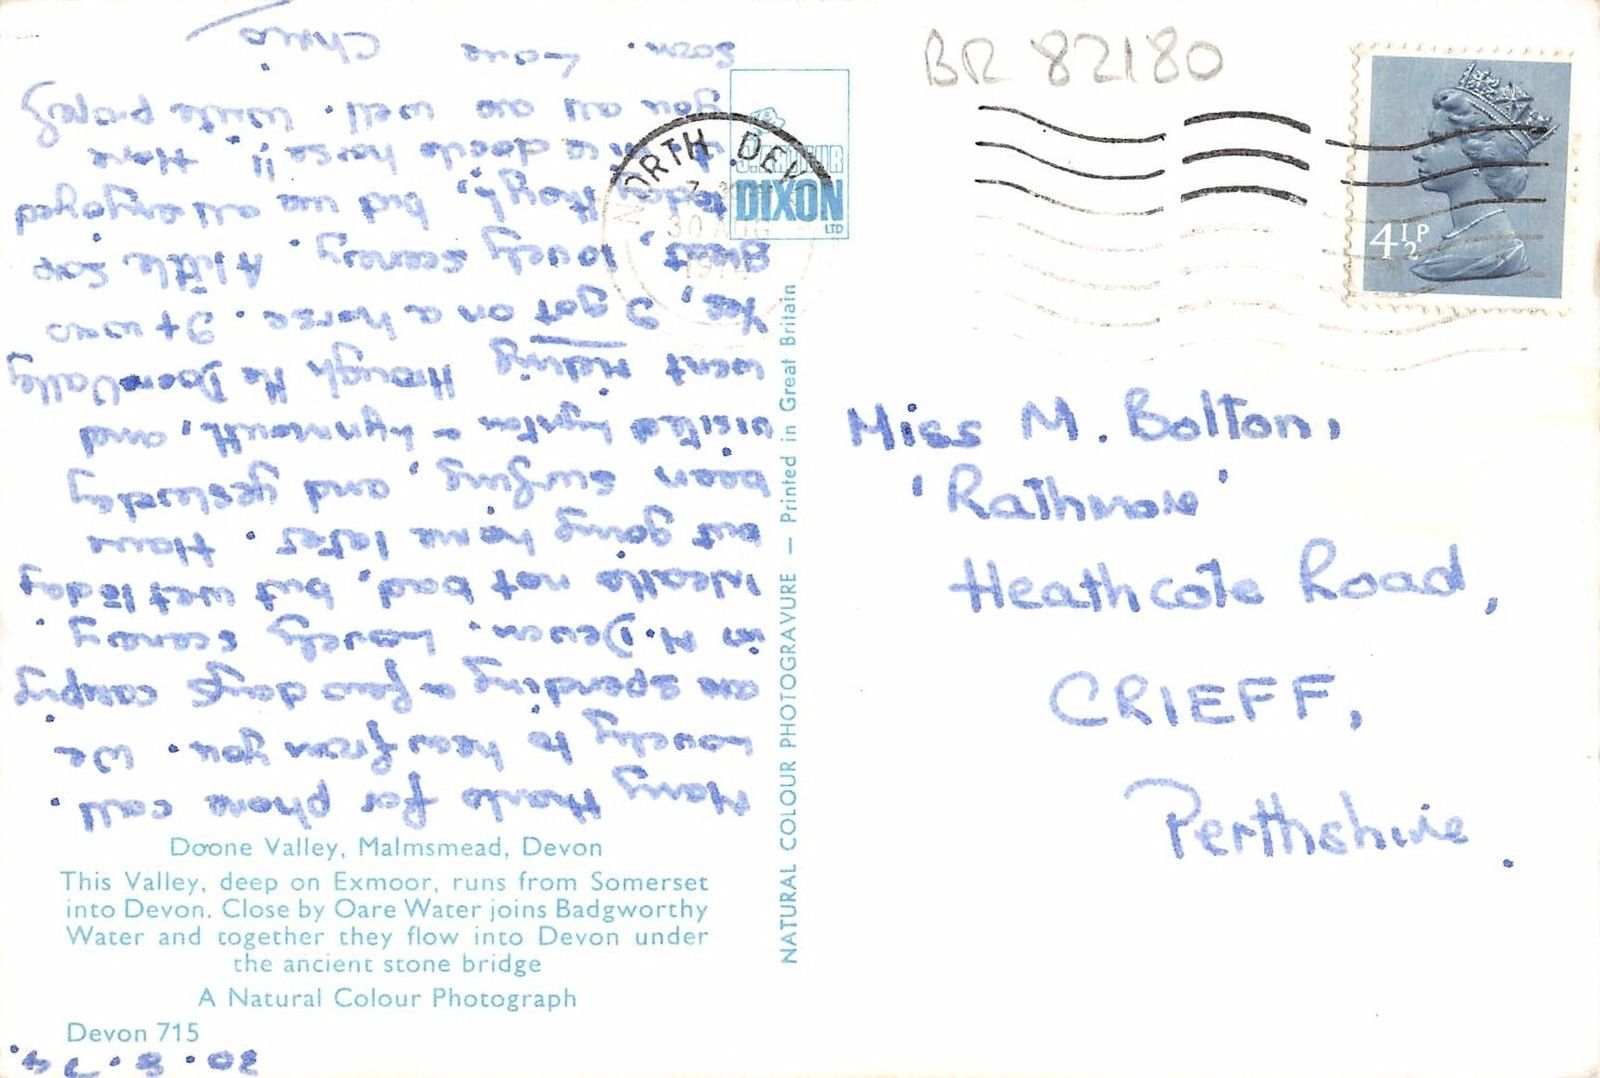 30.8.74.
Many thanks for phone call.
Lovely to hear from you. We
are spending a few days camping
in N. Devon. Lovely scenery.
Weather not bad, but wet today
but going home later. Have
been surfing, and yesterday
visited Lynton & Lynmouth, and
went riding through the Doone Valley
Yes, I got on a horse. It was
great, lovely scenery. A little sore
today though, but we all enjoyed
it. We all are well. Write properly
soon. Love
Doone Valley, Malmsmead, Devon
This Valley, deep on Exmoor, runs from Somerset
into Devon. Close by Oare Water joins Badgworthy
Water and together they flow into Devon under
the ancient stone bridge
A Natural Colour Photograph
Devon 715
NATURAL COLOUR PHOTOGRAVURE — Printed in Great Britain
J. ARTHUR
DIXON
LTD
NORTH DEV
30 AUG
197
BR 82180
4½P
Miss M. Bolton,
Heathcote Road,
CRIEFF,
Perthshire.